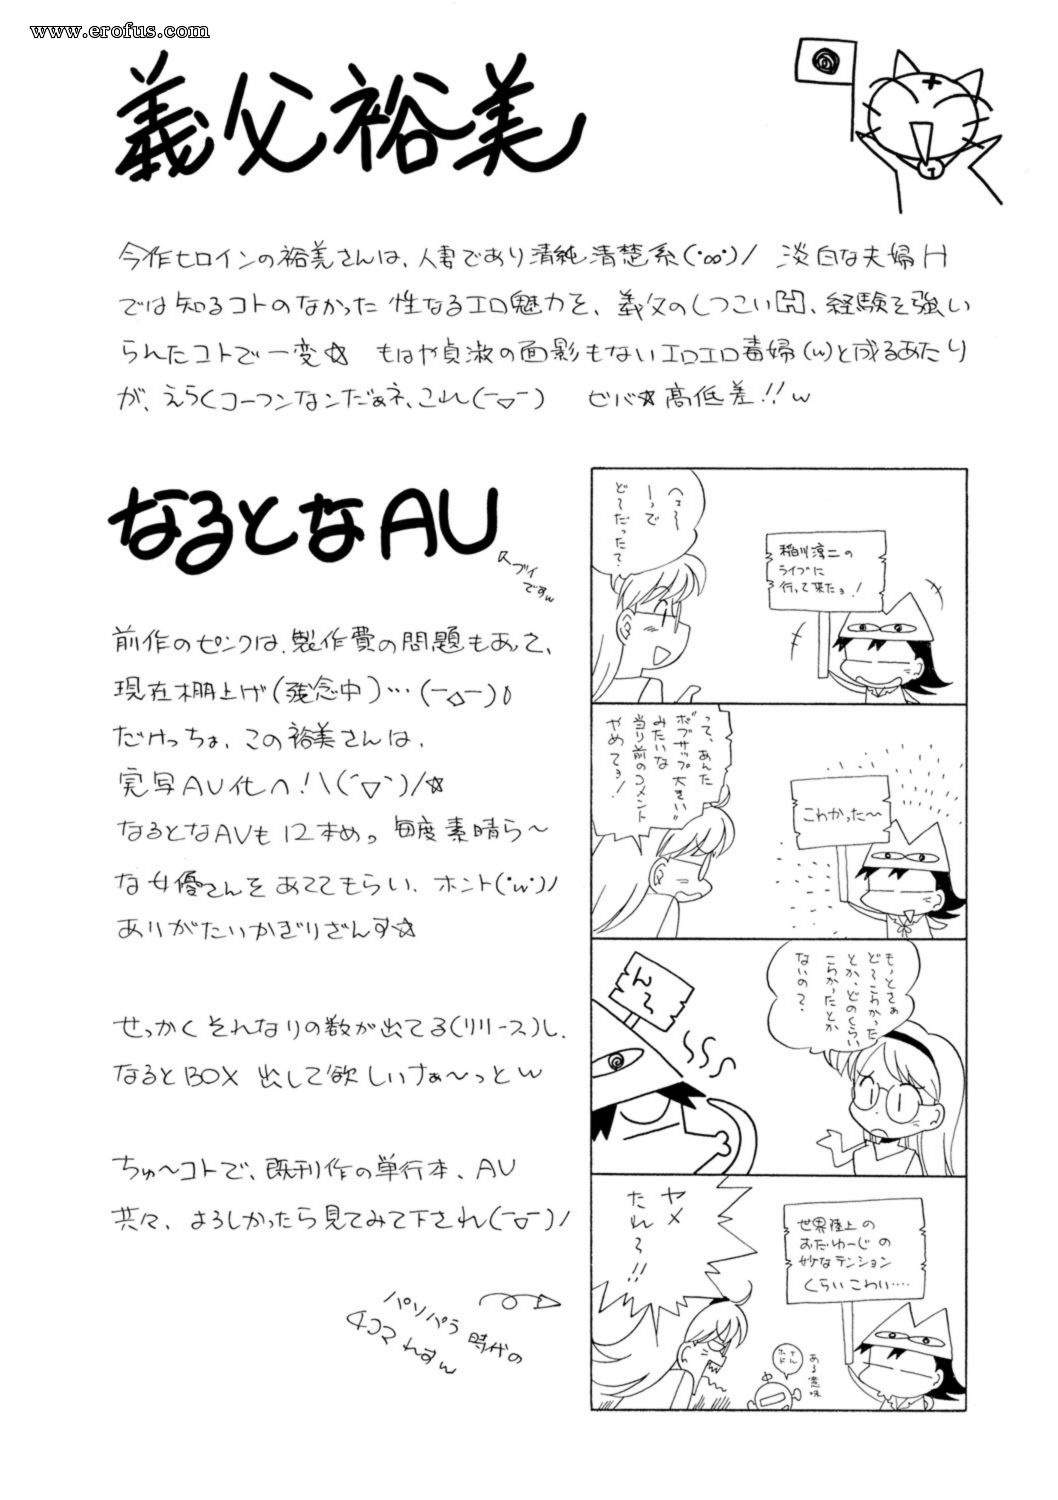 www.erofus.com
義父裕美
今作ヒロインの裕美さんは、人妻であり清純清楚系(・∞・)/ 淡白な夫婦H
では知るコトのなかった性なるエロ魅力を、義父のしつこいH、経験を強い
られたコトで一変☆ もはや貞淑の面影もないエロエロ毒婦(w)と成るあたり
が、えらくコーフンなンだぁネ、これ(ー▽ー) ビバ☆高低差!!w
なるとなAU
スブイ
ですw
前作のピンクは、製作費の問題もあって、
現在棚上げ(残念中)…(ー△ー)
だけっちょ、この裕美さんは、
実写AV化へ!\(´▽`)/☆
なるとなAVも12本め。毎度素晴ら〜
な女優さんをあててもらい、ホント(・w・)ノ
ありがたいかぎりざんす☆
せっかくそれなりの数が出てる(リリース)し、
なるとBOX 出して欲しいさぁ〜っとw
ちゅ〜コトで、既刊作の単行本、AU
共々、よろしかったら見てみて下され(ー▽ー)ノ
パソパラ時代の
4コマれすw
へぇ〜
ーっで
ど〜だった?
稲川淳二の
ライブに
行って来たョ!
って、あんた
ボブサップ大きい〃
みたいな
当り前のコメント
やめてョ!
こわかった〜
も〜っとさぁ
ど〜こわかった
とか、どのくらい
こわかったとか
ないの?
ん〜
世界陸上の
おだゆーじの
妙なテンション
くらいこわい‥‥
ヤメ
たれ〜!!
ある意味